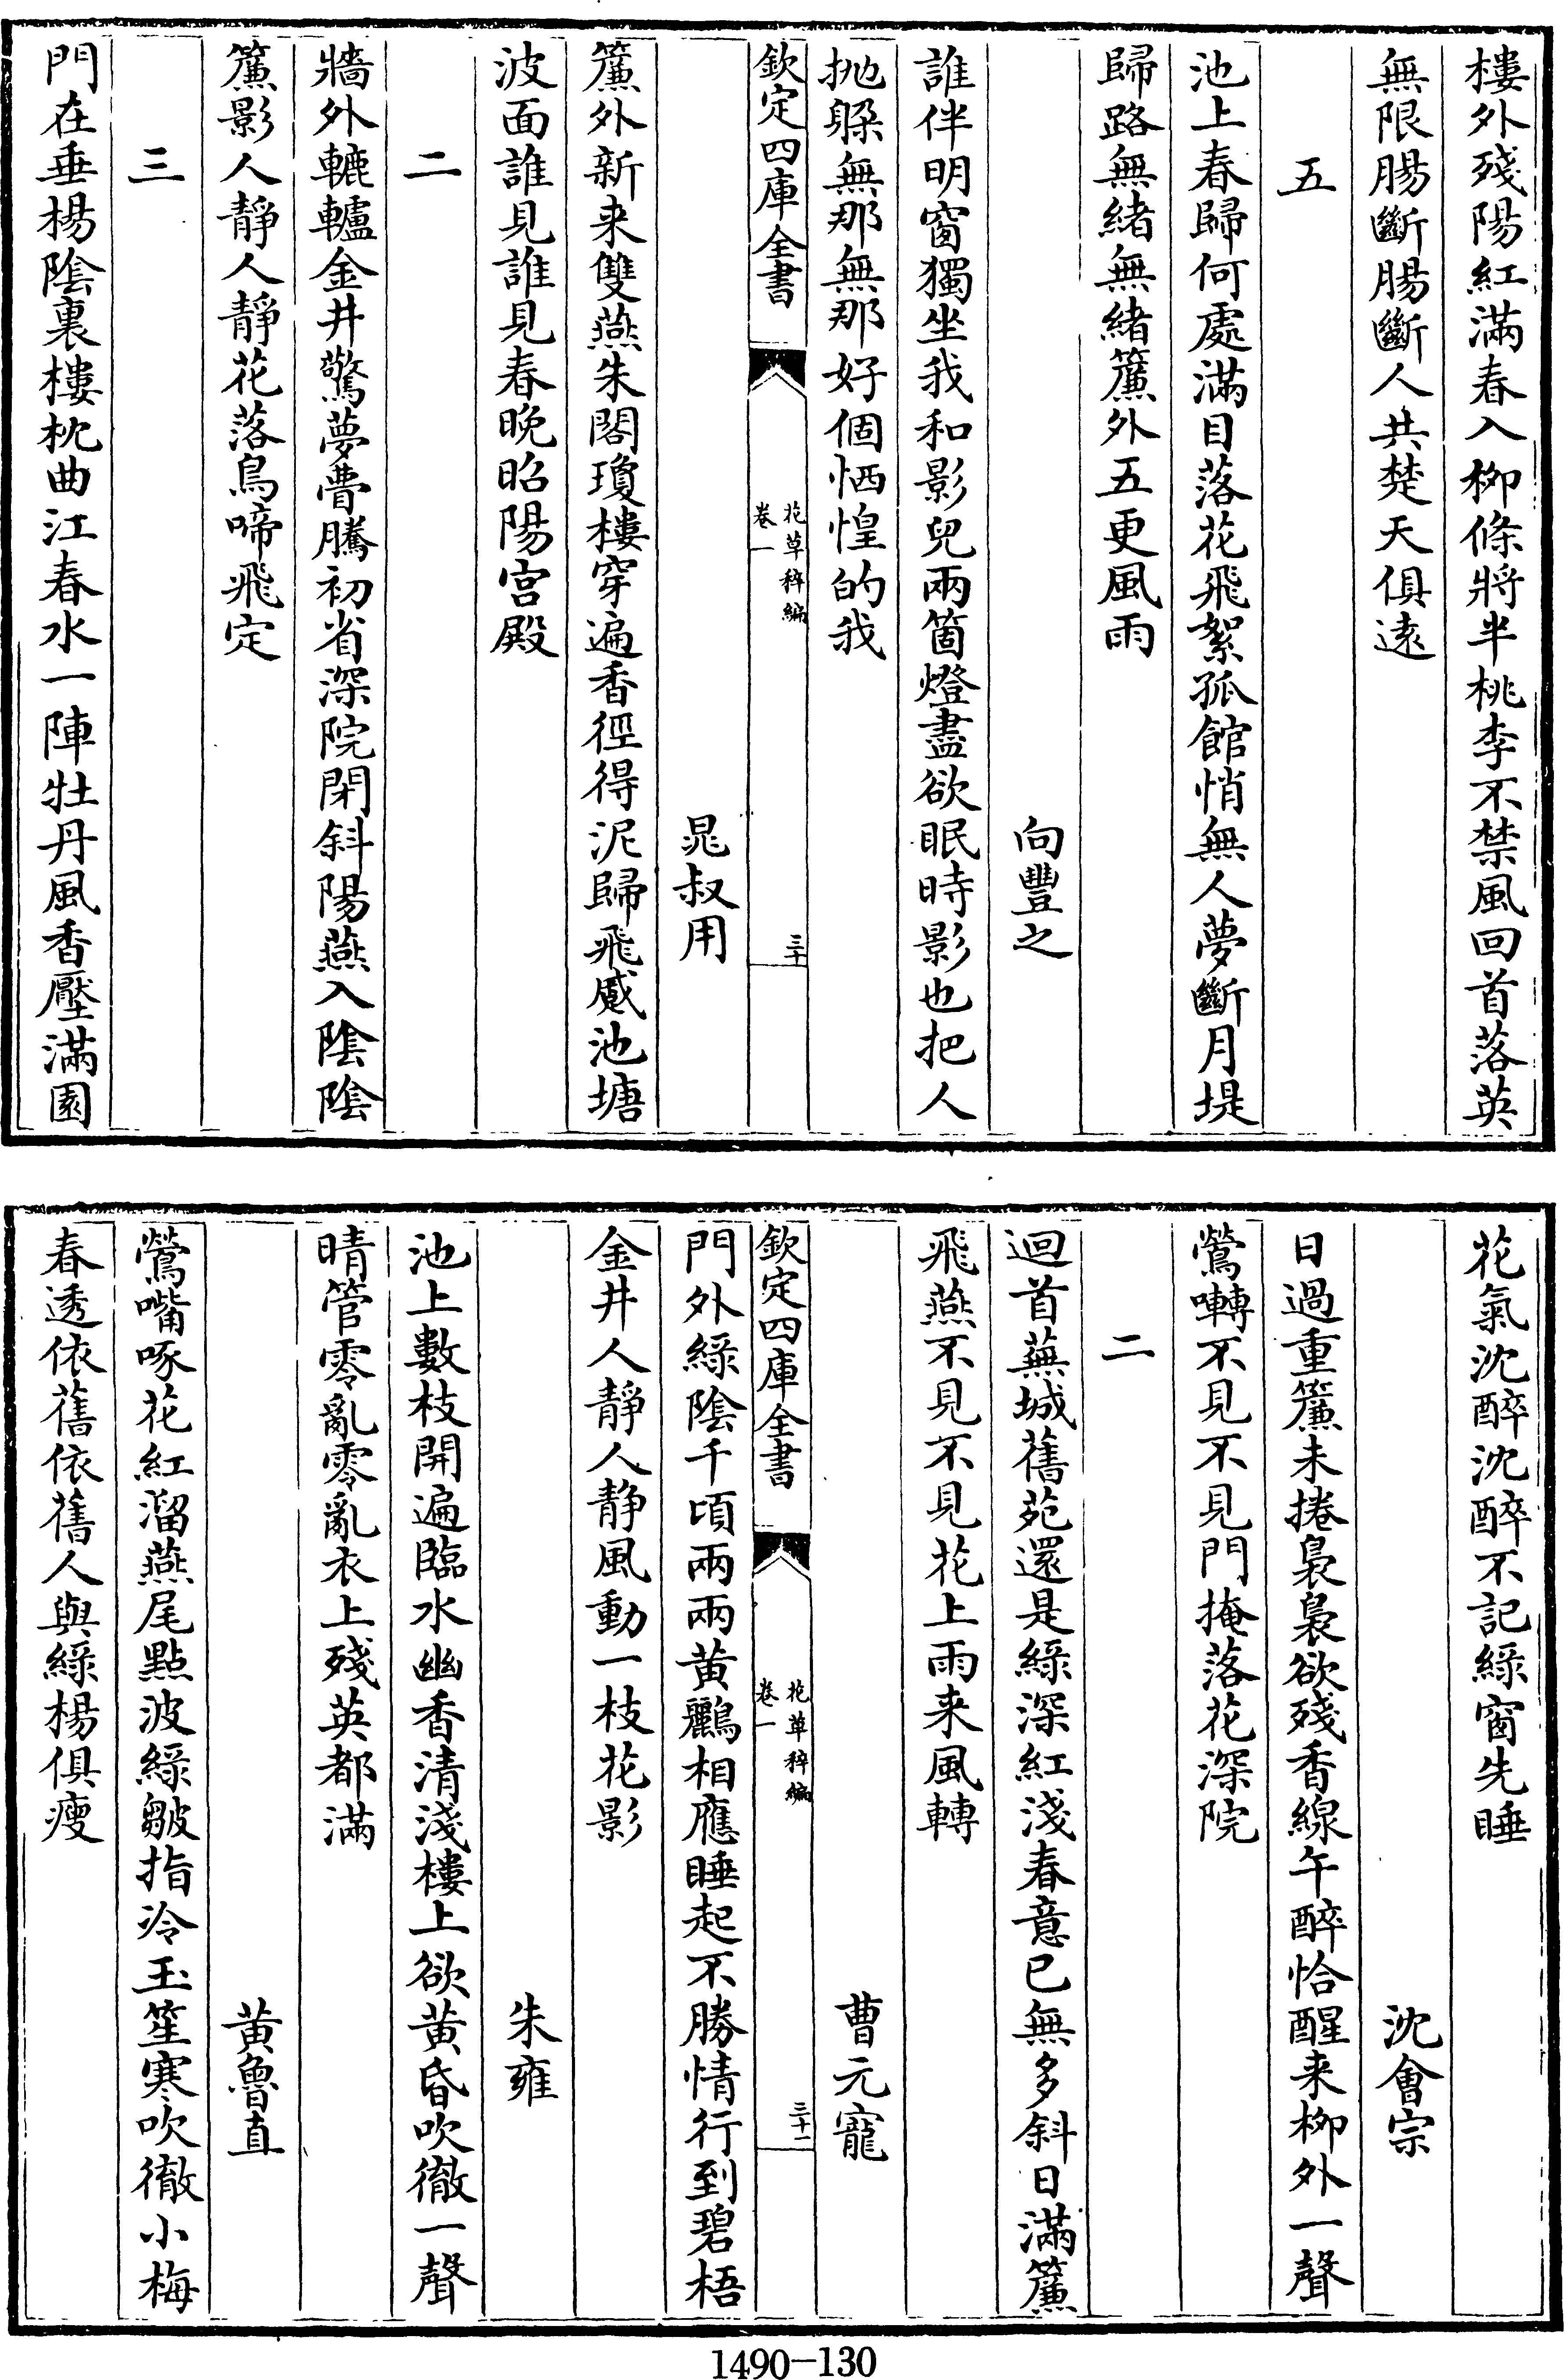 樓外殘陽紅滿春入柳條將半桃李不禁風回首落英
無限腸斷腸斷人共楚天俱遠
五
池上春歸何處滿目落花飛絮孤館悄無人夢斷月堤
歸路無緒無緒簾外五更風雨
向豐之
誰伴明窗獨坐我和影兒兩箇燈盡欲眠時影也把人
抛躲無那無那好個恓惶的我
欽定四庫全書
花草稡編
卷一
三十
晁叔用
簾外新来雙燕朱閣瓊樓穿遍香徑得泥歸飛蹙池塘
波面誰見誰見春晚昭陽宫殿
二
牆外轆轤金井驚夢瞢騰初省深院閉斜陽燕入陰陰
簾影人靜人靜花落鳥啼飛定
三
門在垂楊陰裏樓枕曲江春水一陣牡丹風香壓滿園
花氣沈醉沈醉不記綠窗先睡
沈會宗
日過重簾未捲裊裊欲殘香線午醉恰醒来柳外一聲
鶯囀不見不見門掩落花深院
二
迴首蕪城舊苑還是綠深紅淺春意已無多斜日滿簾
飛燕不見不見花上雨来風轉
曹元寵
欽定四庫全書
花草稡編
卷一
三十一
門外綠陰千頃兩兩黄鸝相應睡起不勝情行到碧梧
金井人靜人静風動一枝花影
朱雍
池上數枝開遍臨水幽香清淺樓上欲黄昏吹徹一聲
晴管零亂零亂衣上殘英都滿
黄魯直
鶯嘴啄花紅溜燕尾點波綠皺指冷玉笙寒吹徹小梅
春透依舊依舊人與綠楊俱瘦
1490-130